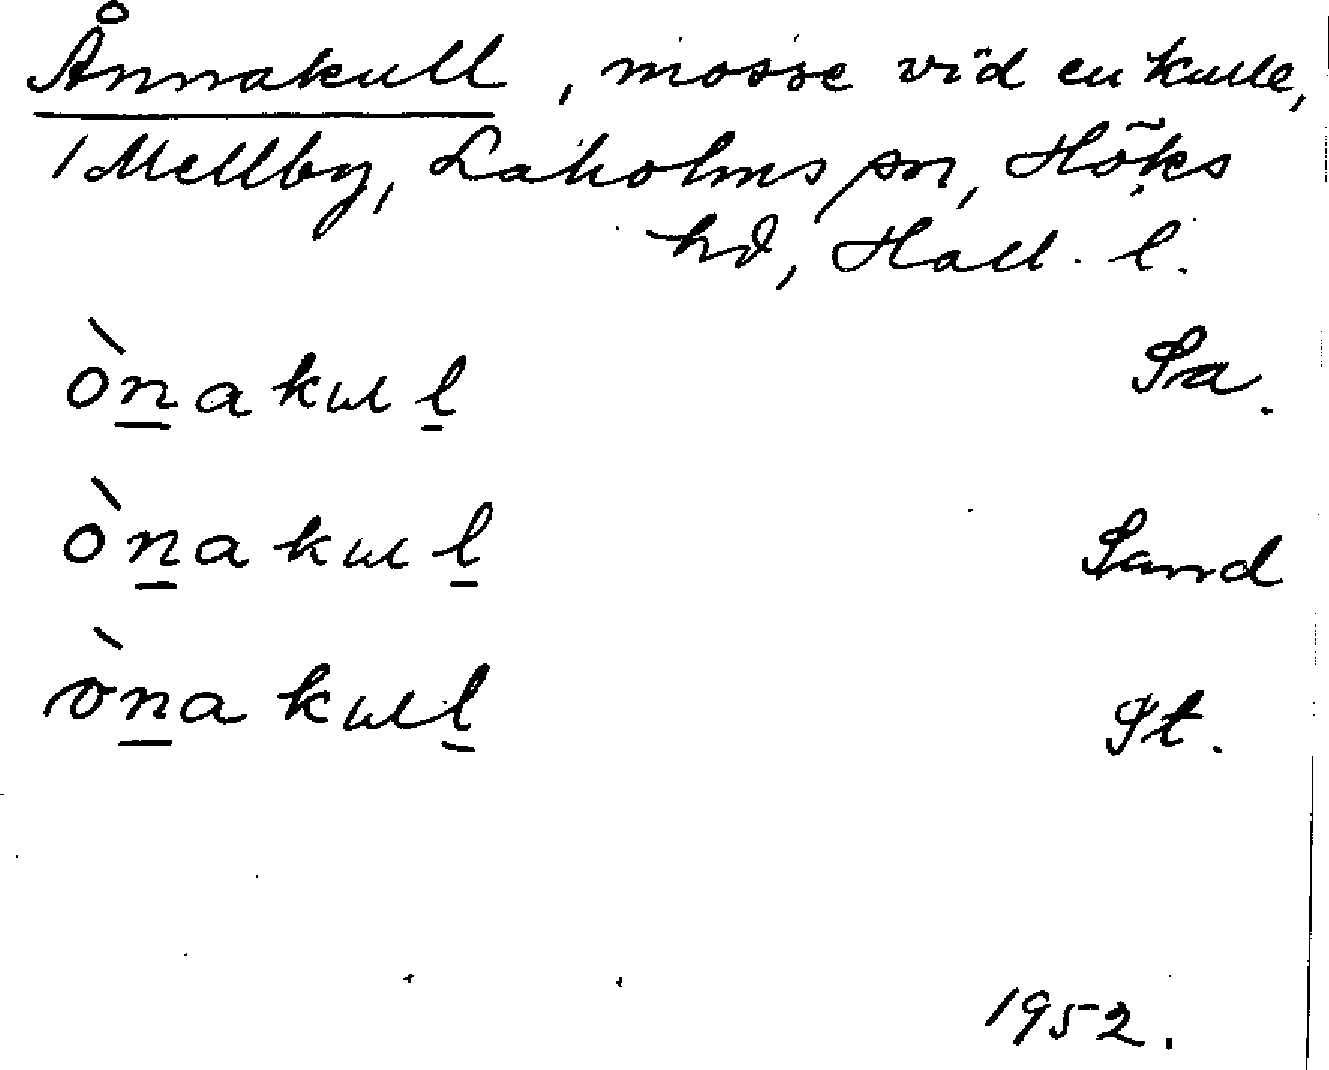 Ånnakull, mosse vid en kulle,
i Mellby, Laholms sn, Höks
hd, Hall. l.
ònakul̲ Sa.
ònakul̲ Sand
ònakul̲ St.
1952.